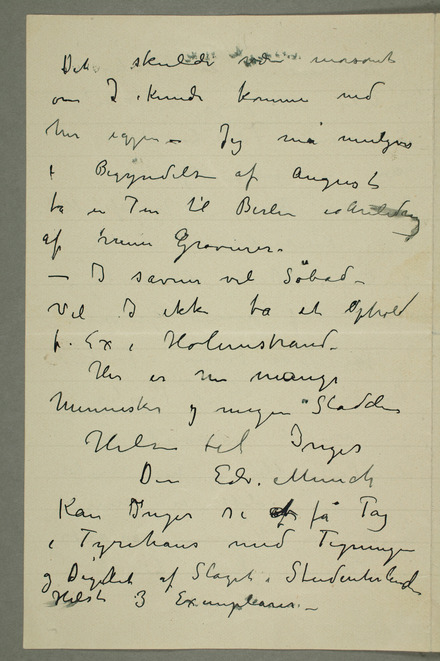 Det skulde være morsomt
om I kunde komme ned
her igjen – Jeg må muligens
i Begyndelsen af August
ta en Tur til Berlin i Anledning
af mine Gravurer.
– I savner vel Søbad –
Vil I ikke ta et Ophold
f. Ex i Holmestrand –
Her er nu mange
Mennesker og megen Sladder
Hilsen til Inger
Din Edv. Munch
Kan Inger se at få Tag
i Tyrihans med Tegninger
og Digtet af Slaget i Studenterlunden
Helst 3 Exemplarer. –